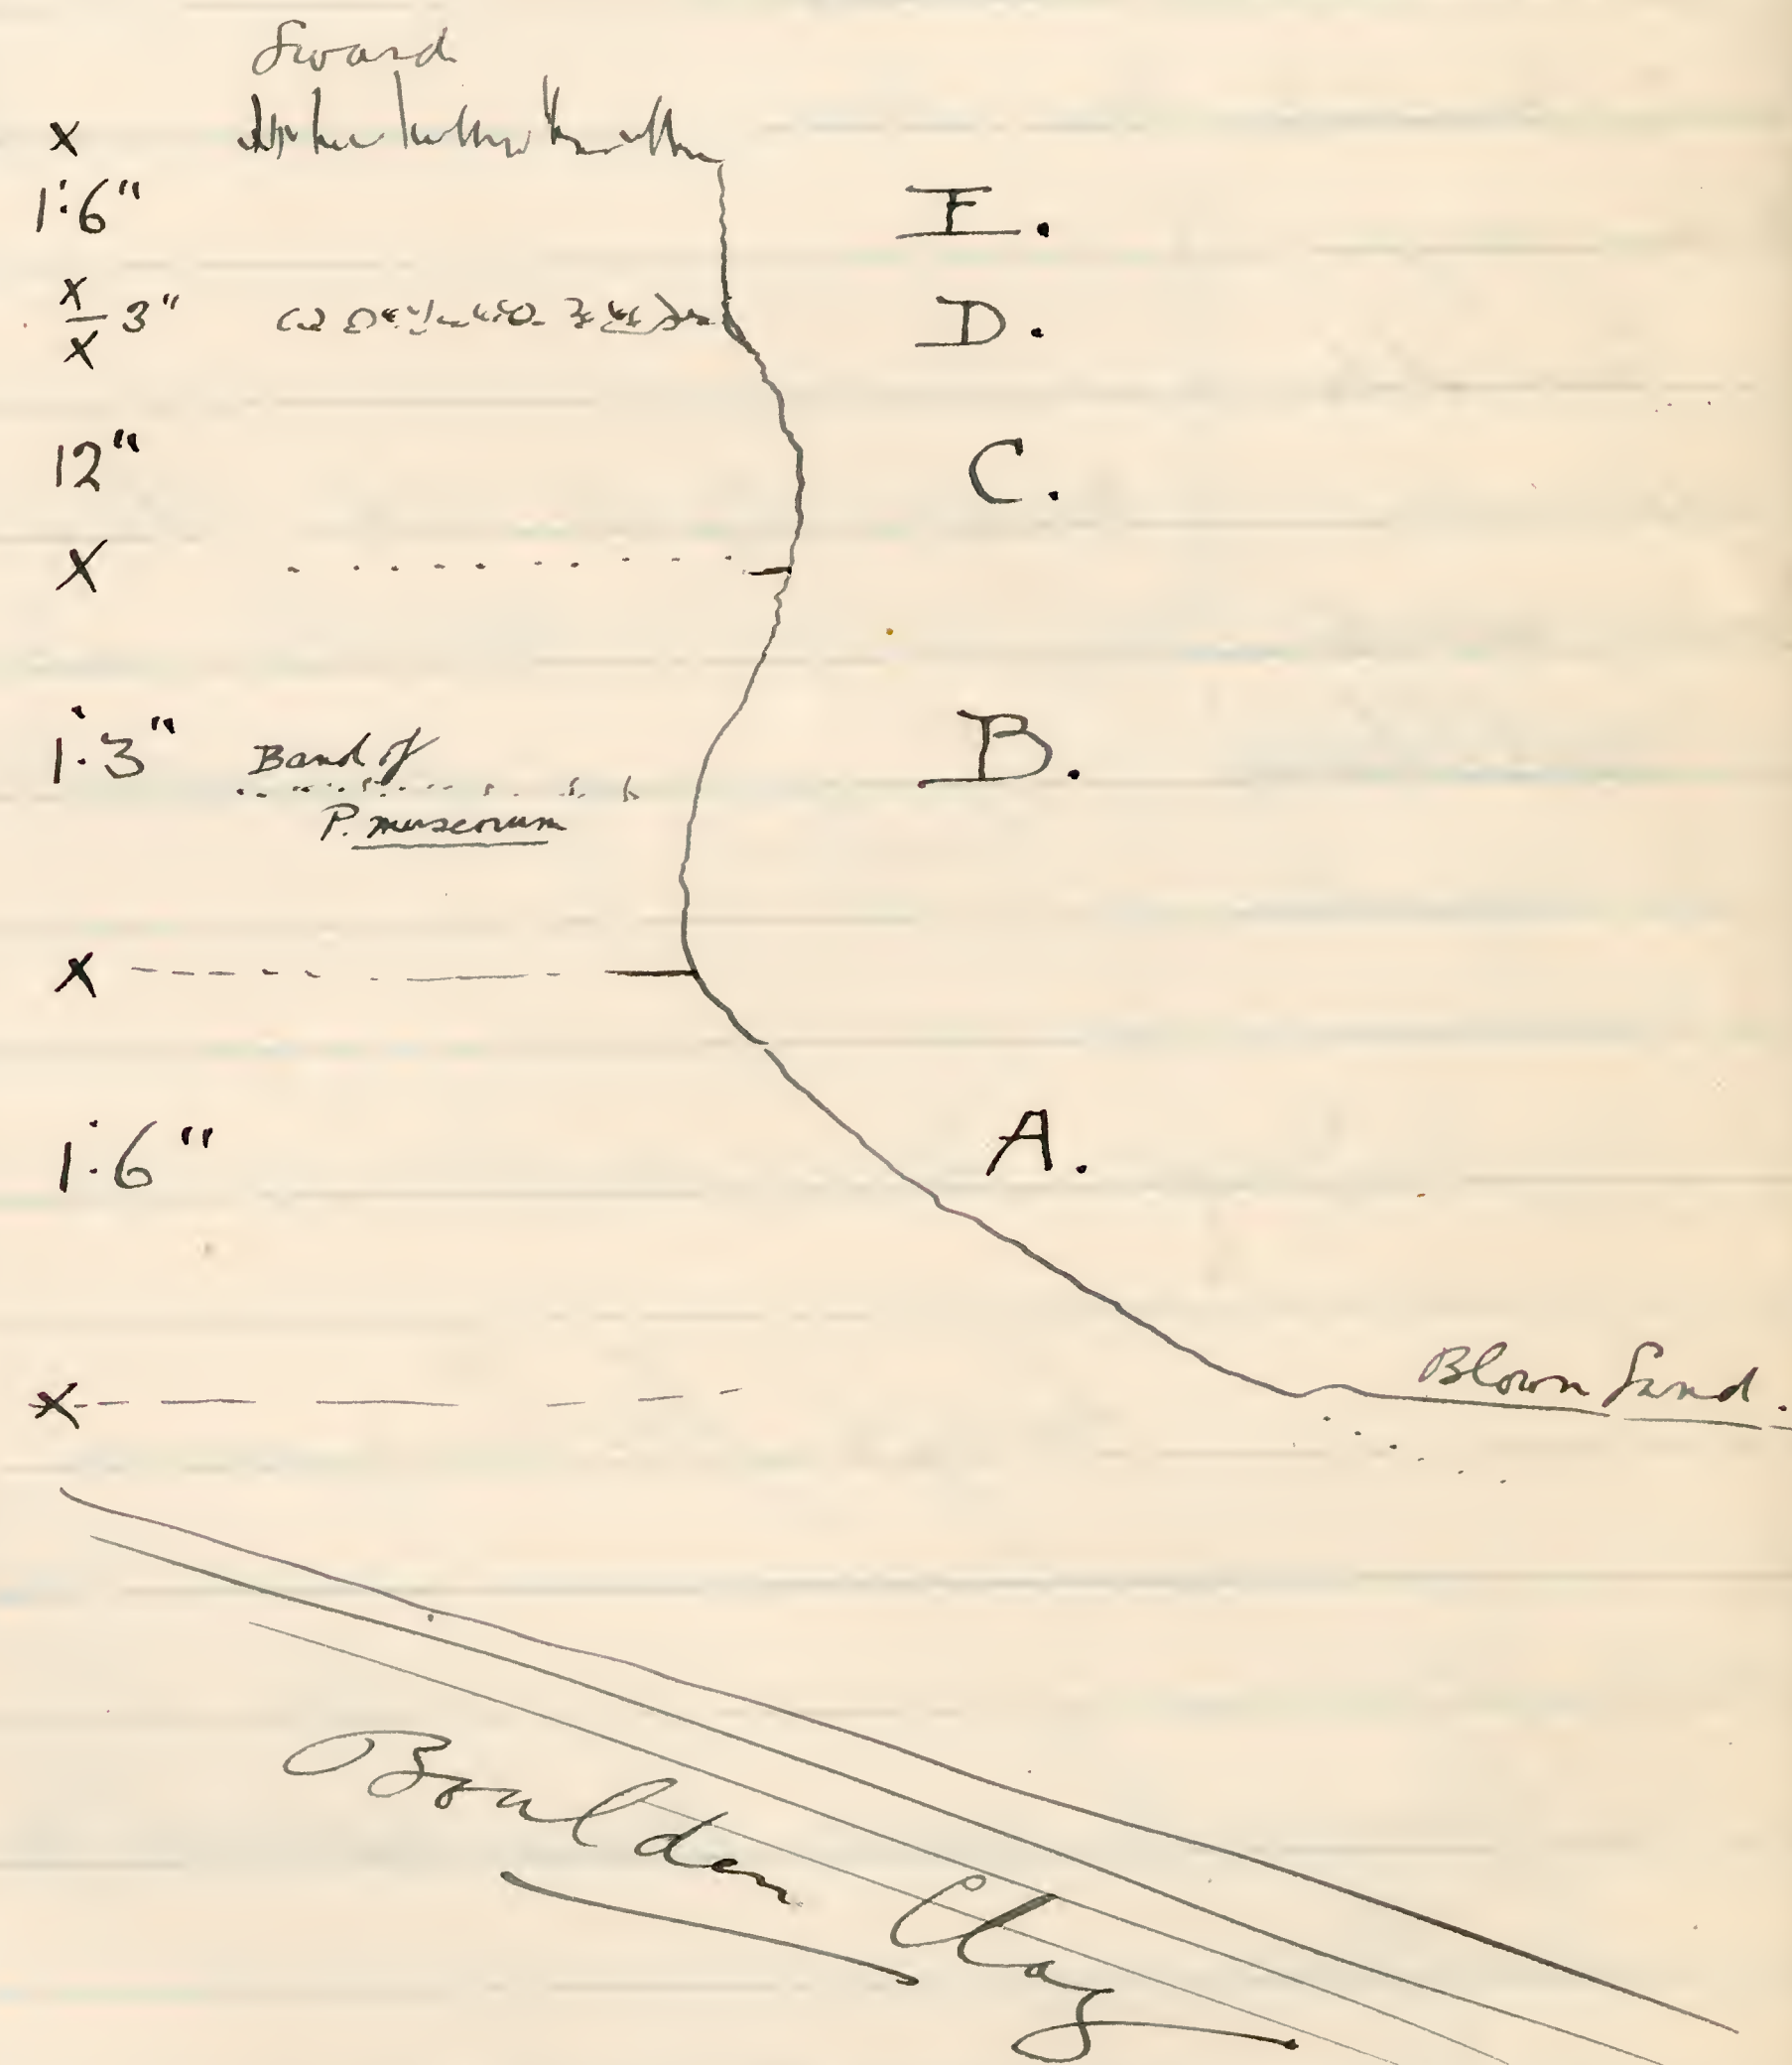 Sward
x
1':6" E.
x
3" D.
x
12" C.
x
1':3" Band of B.
P. muscorum
x
1':6" A.
x
Blown Sand.
Boulder Clay